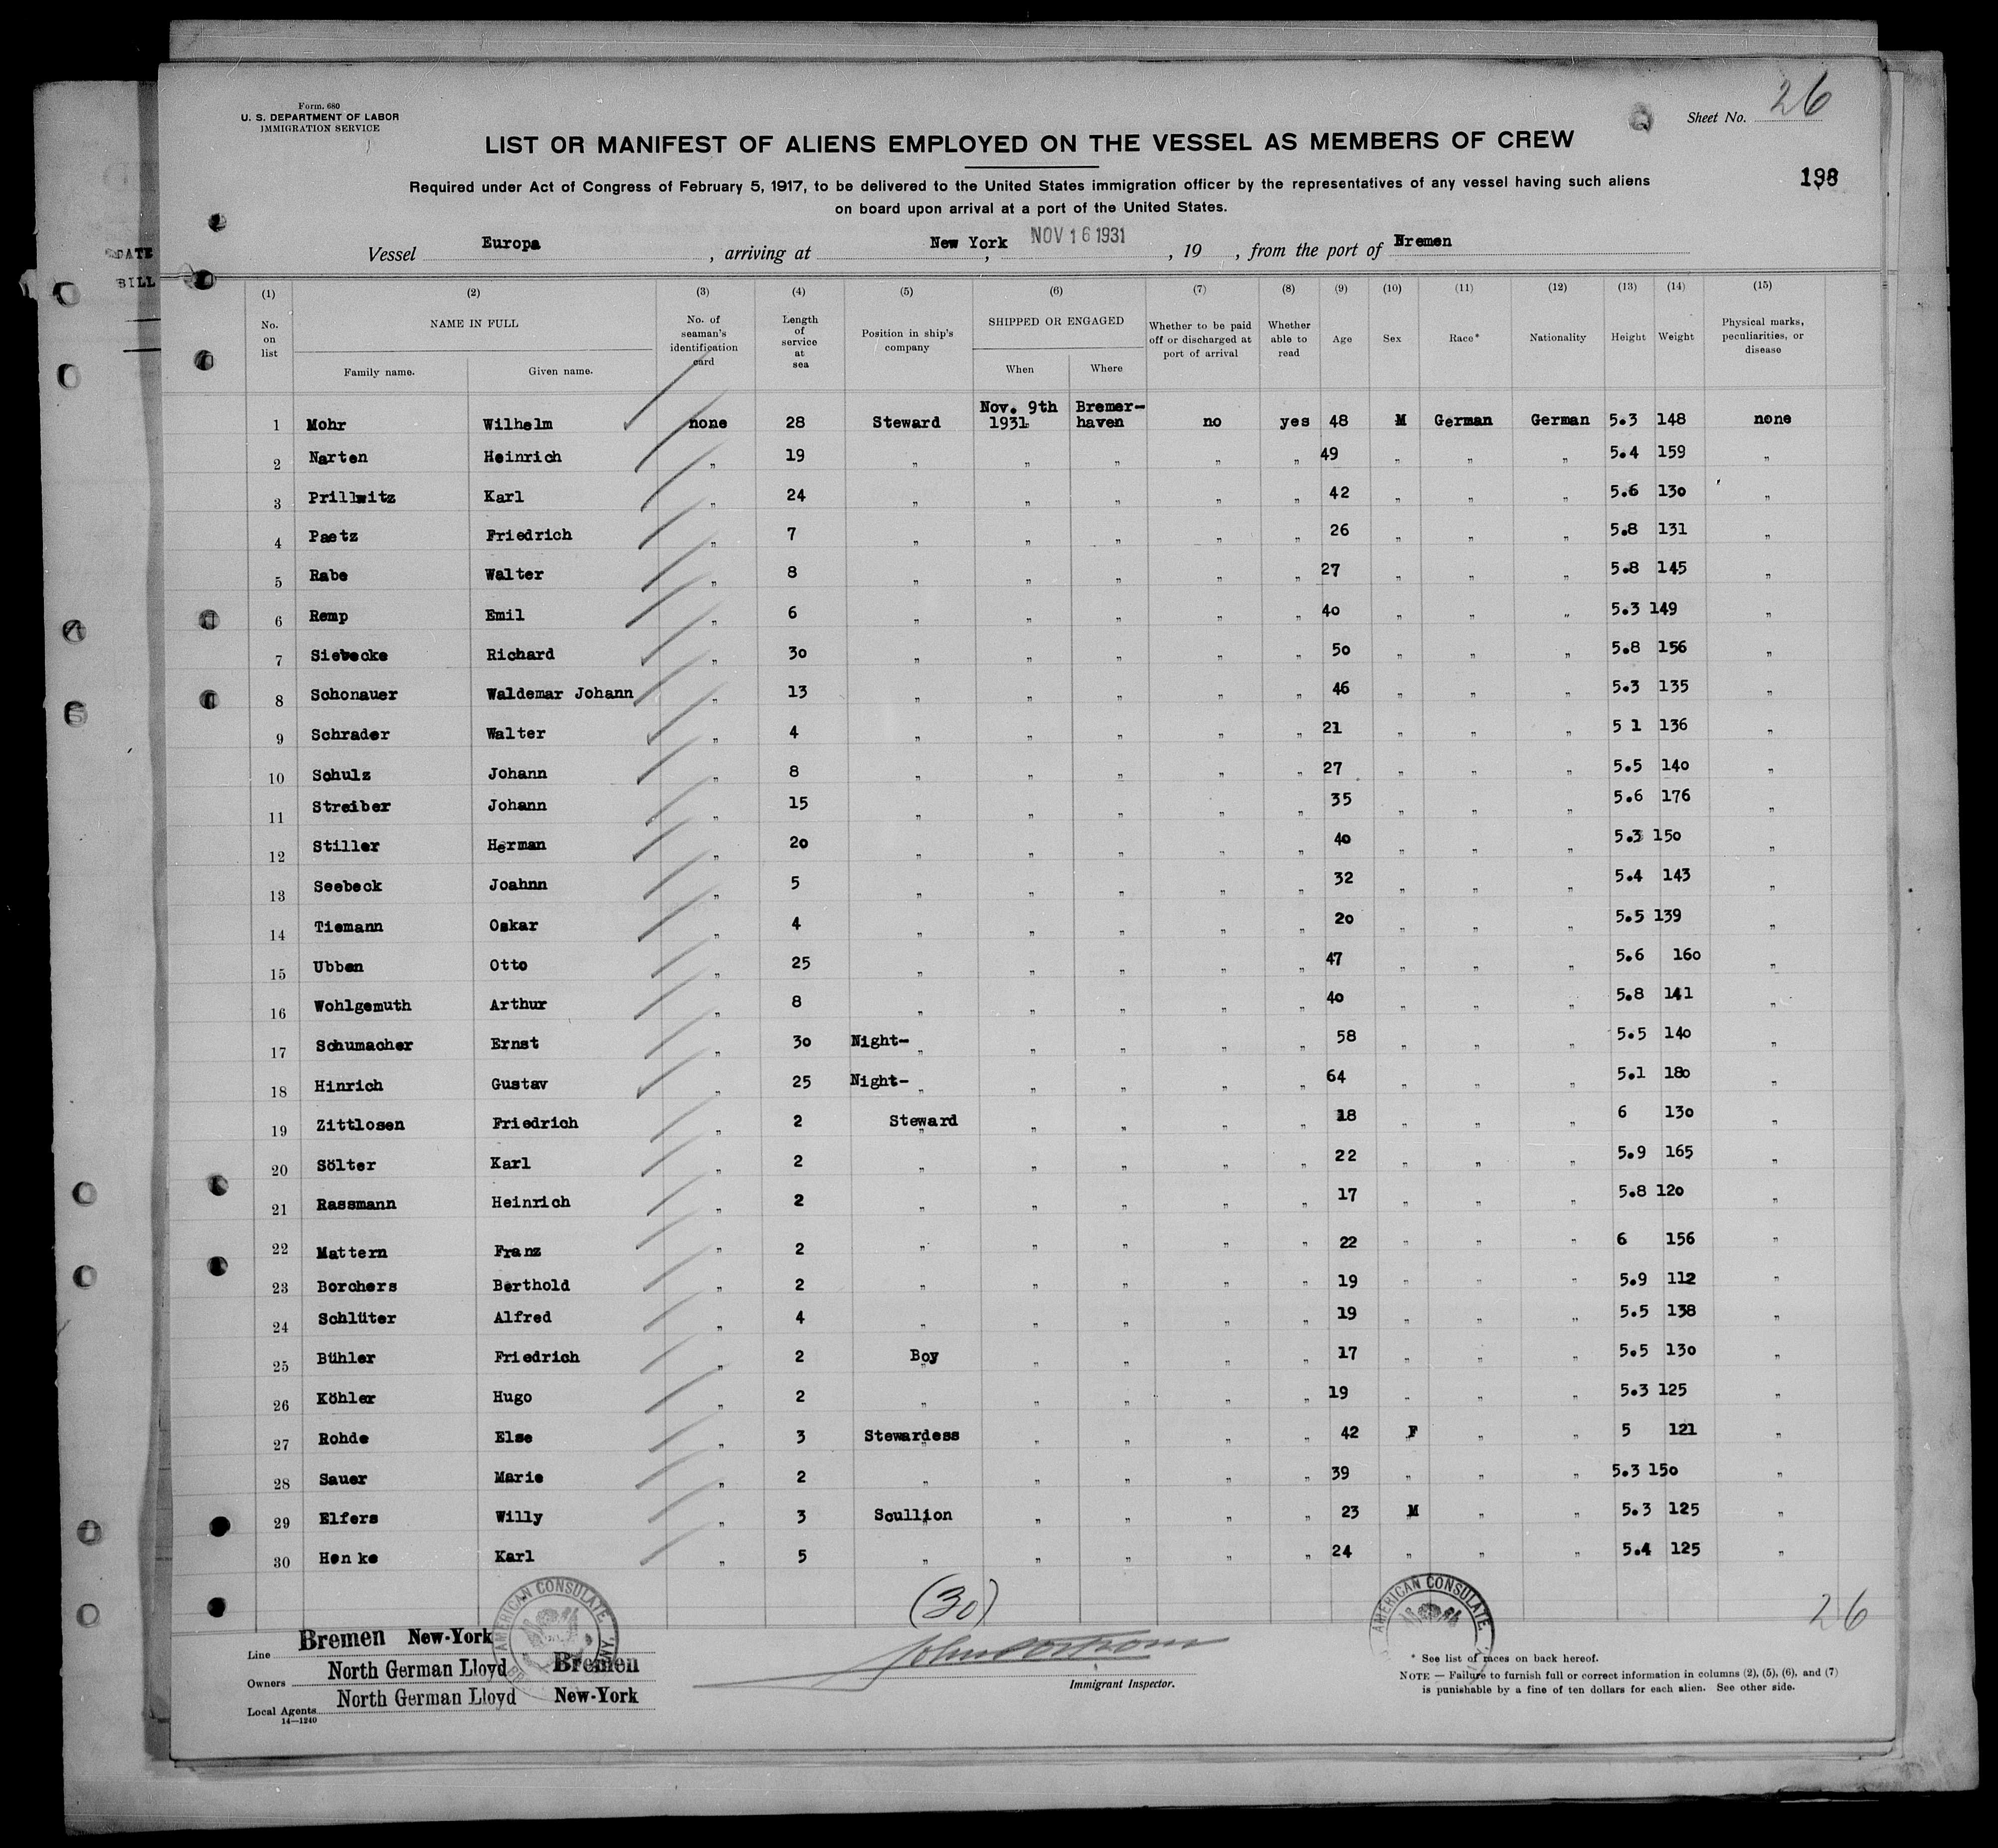 Form. 680
U. S. DEPARTMENT OF LABOR
IMMIGRATION SERVICE
Sheet No. 26
LIST OR MANIFEST OF ALIENS EMPLOYED ON THE VESSEL AS MEMBERS OF CREW
198
Required under Act of Congress of February 5, 1917, to be delivered to the United States immigration officer by the representatives of any vessel having such aliens
on board upon arrival at a port of the United States.
DATE
BILL
Vessel Europa , arriving at New York , NOV 16 1931 , 19 , from the port of Bremen
(1) (2) (3) (4) (5) (6) (7) (8) (9) (10) (11) (12) (13) (14) (15)
No. on list NAME IN FULL Family name. Given name. No. of seaman's identification card Length of service at sea Position in ship's company SHIPPED OR ENGAGED When Where Whether to be paid off or discharged at port of arrival Whether able to read Age Sex Race* Nationality Height Weight Physical marks, peculiarities, or disease
1 Mohr Wilhelm none 28 Steward Nov. 9th 1931 Bremer-haven no yes 48 M German German 5.3 148 none
2 Narten Heinrich " 19 " " " " " 49 " " " 5.4 159 "
3 Prillwitz Karl " 24 " " " " " 42 " " " 5.6 130 "
4 Paetz Friedrich " 7 " " " " " 26 " " " 5.8 131 "
5 Rabe Walter " 8 " " " " " 27 " " " 5.8 145 "
6 Remp Emil " 6 " " " " " 40 " " " 5.3 149 "
7 Siebecke Richard " 30 " " " " " 50 " " " 5.8 156 "
8 Schonauer Waldemar Johann " 13 " " " " " 46 " " " 5.3 135 "
9 Schrader Walter " 4 " " " " " 21 " " " 5 1 136 "
10 Schulz Johann " 8 " " " " " 27 " " " 5.5 140 "
11 Streiber Johann " 15 " " " " " 35 " " " 5.6 176 "
12 Stiller Herman " 20 " " " " " 40 " " " 5.3 150 "
13 Seebeck Joahnn " 5 " " " " " 32 " " " 5.4 143 "
14 Tiemann Oskar " 4 " " " " " 20 " " " 5.5 139 "
15 Ubben Otto " 25 " " " " " 47 " " " 5.6 160 "
16 Wohlgemuth Arthur " 8 " " " " " 40 " " " 5.8 141 "
17 Schumacher Ernst " 30 Night- " " " " " 58 " " " 5.5 140 "
18 Hinrich Gustav " 25 Night- " " " " " 64 " " " 5.1 180 "
19 Zittlosen Friedrich " 2 Steward " " " " 18 " " " 6 130 "
20 Sölter Karl " 2 " " " " " 22 " " " 5.9 165 "
21 Rassmann Heinrich " 2 " " " " " 17 " " " 5.8 120 "
22 Mattern Franz " 2 " " " " " 22 " " " 6 156 "
23 Borchers Berthold " 2 " " " " " 19 " " " 5.9 112 "
24 Schlüter Alfred " 4 " " " " " 19 " " " 5.5 138 "
25 Bühler Friedrich " 2 Boy " " " " 17 " " " 5.5 130 "
26 Köhler Hugo " 2 " " " " " 19 " " " 5.3 125 "
27 Rohde Else " 3 Stewardess " " " " 42 F " " 5 121 "
28 Sauer Marie " 2 " " " " " 39 " " " 5.3 150 "
29 Elfers Willy " 3 Scullion " " " " 23 M " " 5.3 125 "
30 Henke Karl " 5 " " " " " 24 " " " 5.4 125 "
(30)
26
AMERICAN CONSULATE
AMERICAN CONSULATE
Line Bremen New-York
Owners North German Lloyd Bremen
Local Agents North German Lloyd New-York
14—1240
Immigrant Inspector.
* See list of races on back hereof.
NOTE — Failure to furnish full or correct information in columns (2), (5), (6), and (7)
is punishable by a fine of ten dollars for each alien. See other side.